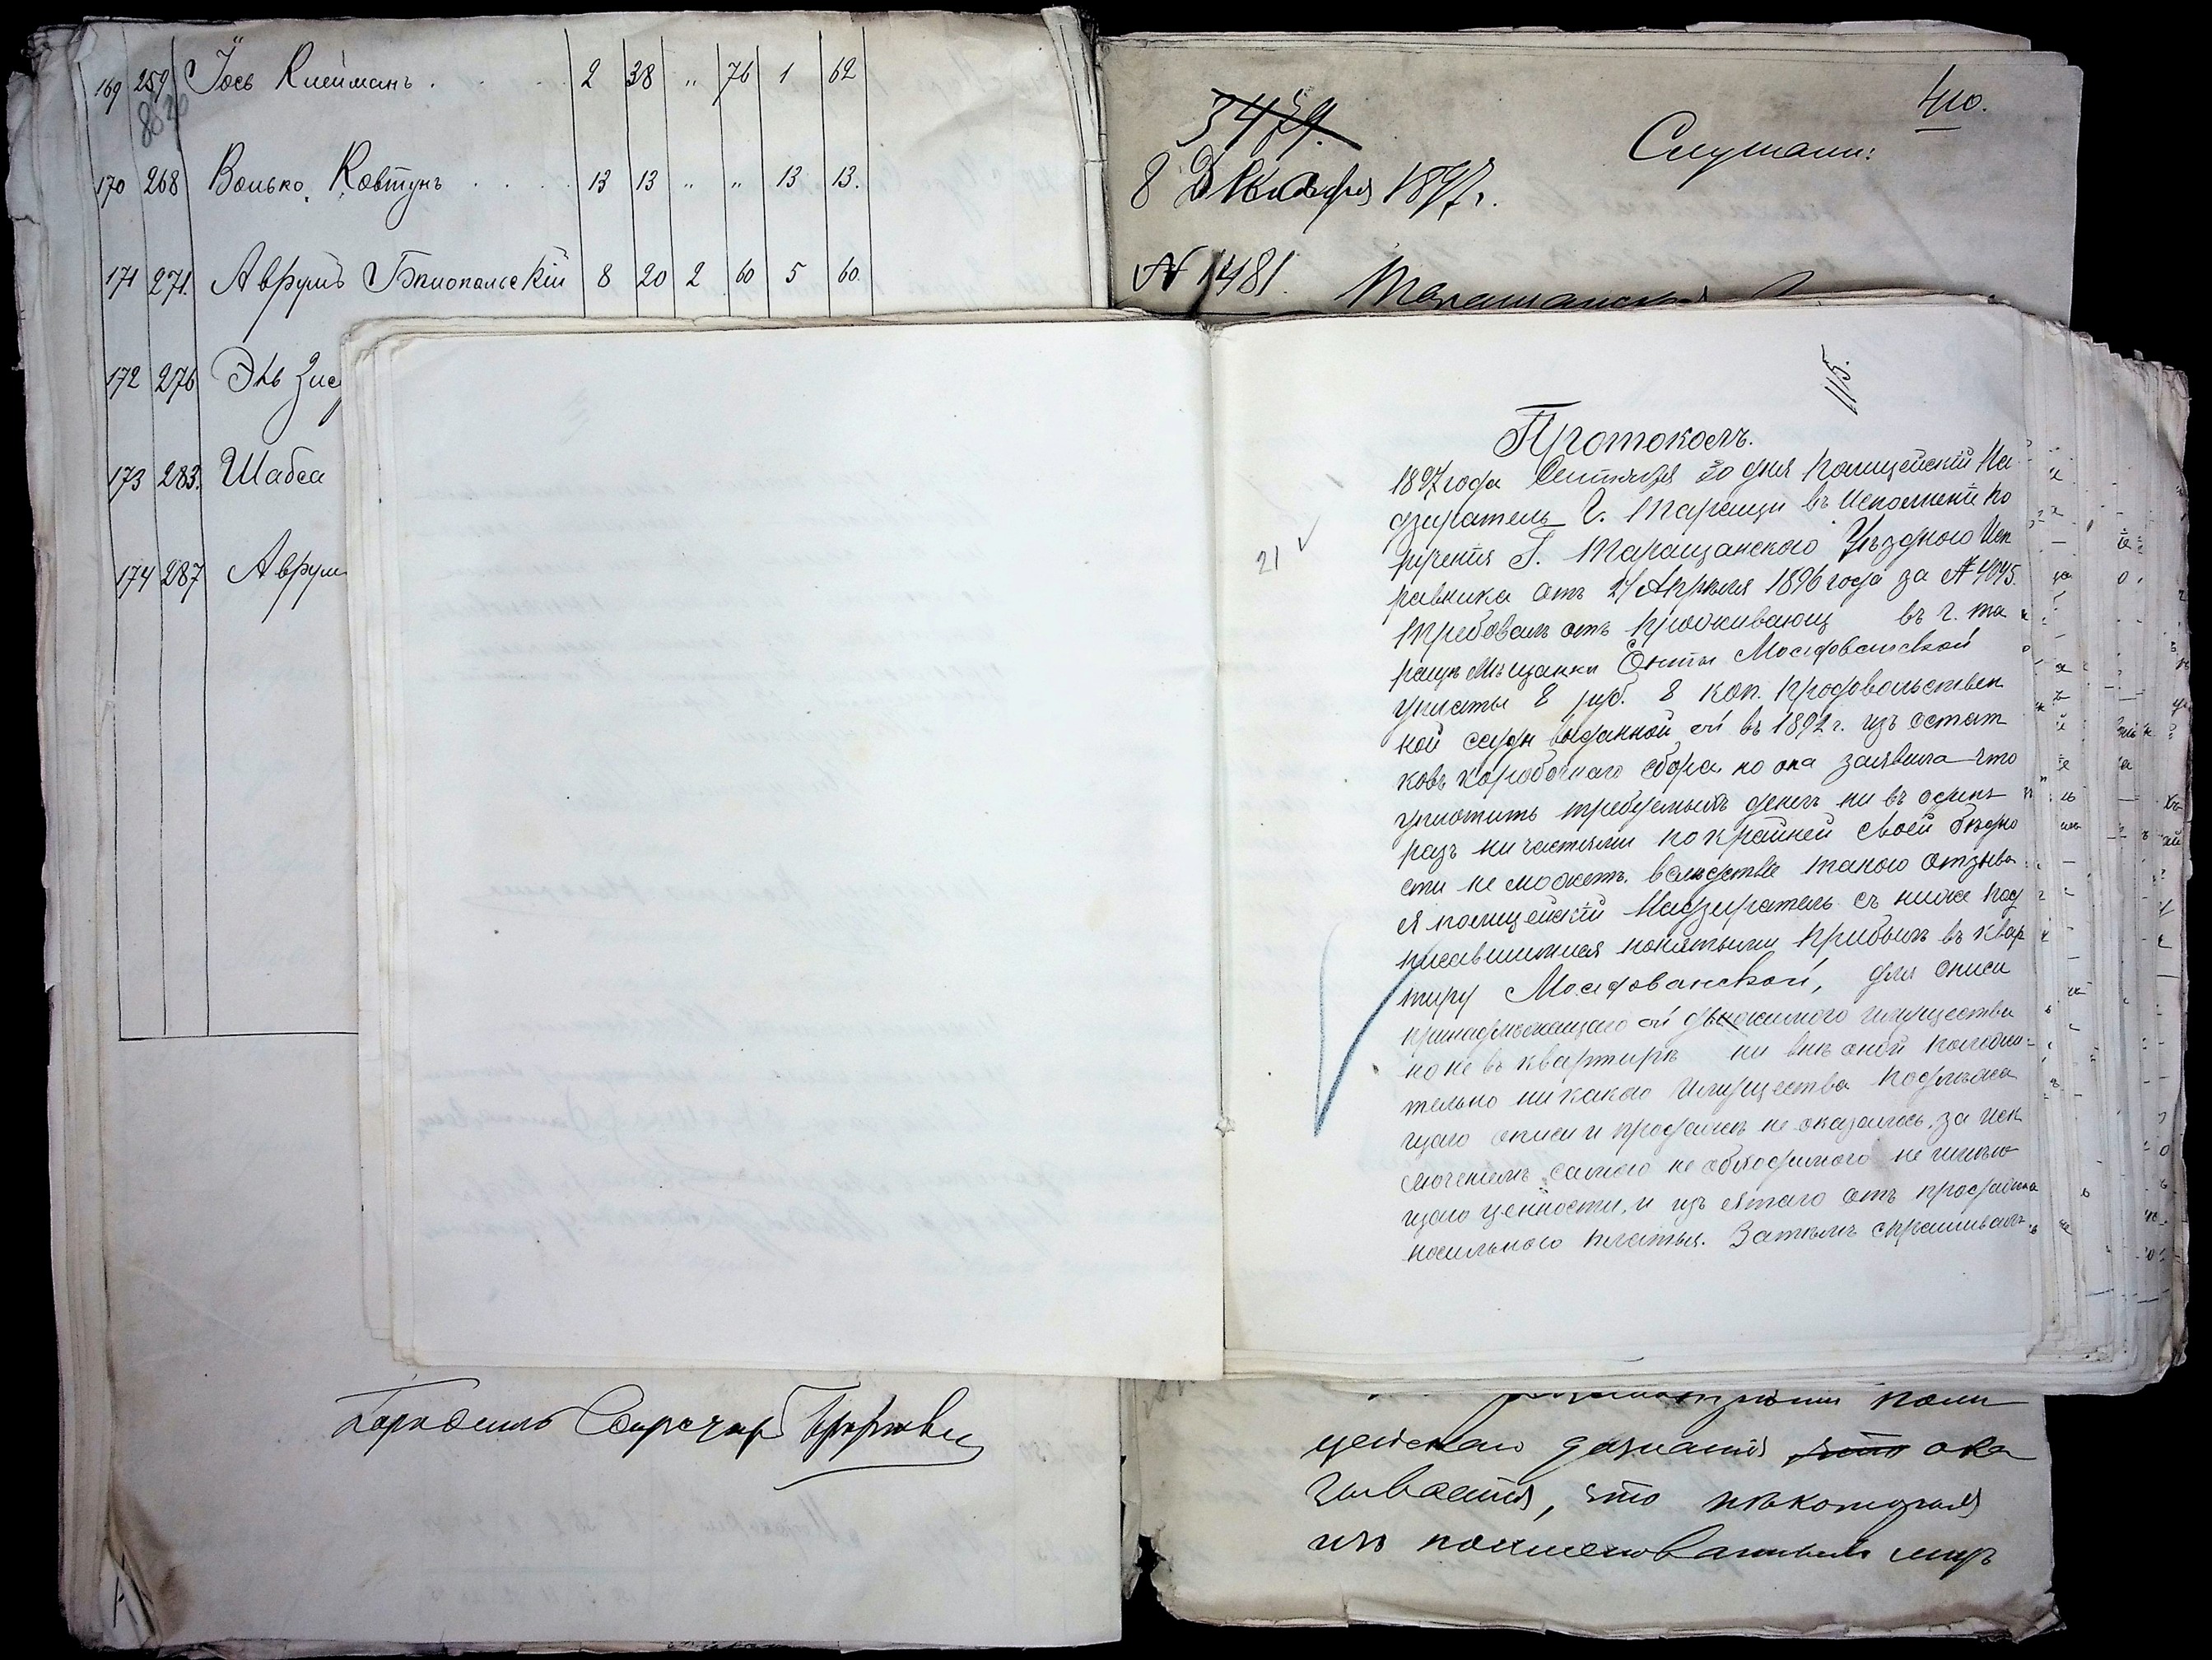 169 259 Іось Клейманъ . . . 2 38 „ 76 1 62
8820
170 268 Волько Ковтунъ . . . . 13 13 „ „ 13 13.
171 271. Аврумъ Бялопольскій 8 20 2 60 5 60.
172 276 Эль Зис
173 283. Шабса
174 287 Аврум
Городской Староста
410.
3479.
Слушали:
8 Декабря 1897 г.
N 1481.
Таращанская
115.
Протоколъ.
1897 года Сентября 20 дня Полицейскій На
дзиратель г. Таращи въ исполненіе по
рученія Г. Таращанскаго Уѣзднаго Исп
равника отъ 24 Апрѣля 1896 года за № 4045.
21 требовалъ отъ проживающ въ г. та
ращѣ Мѣщанки Енты Молдованской
уплаты 8 руб. 8 коп. продовольствен
ной ссуды выданной ей въ 1892 г. изъ остат
ковъ коробочнаго сбора но она заявила что
уплотить требуемыхъ денегъ ни въ одинъ
разъ ни частями по крайней своей бѣдно
сти не можетъ. вслѣдствіе такого отзыва
я полицейскій Надзиратель съ ниже под
писавшимися понятыми прибылъ въ квар
тиру Молдованской, для описи
принадлежащаго ей движимого имущества
но не въ квартирѣ ни внѣ оной положи-
тельно никакого имущества подлежа
щаго описи и продажѣ не оказалось, за иск
люченіемъ самого необходимого не имѣю
щаго ценности, и изъятаго отъ продажи
носильнаго платья. Затѣмъ спрашивалъ
поли
цейскаго дознанія что ока
зывается, что нѣкоторыя
изъ поименованныхъ лицъ